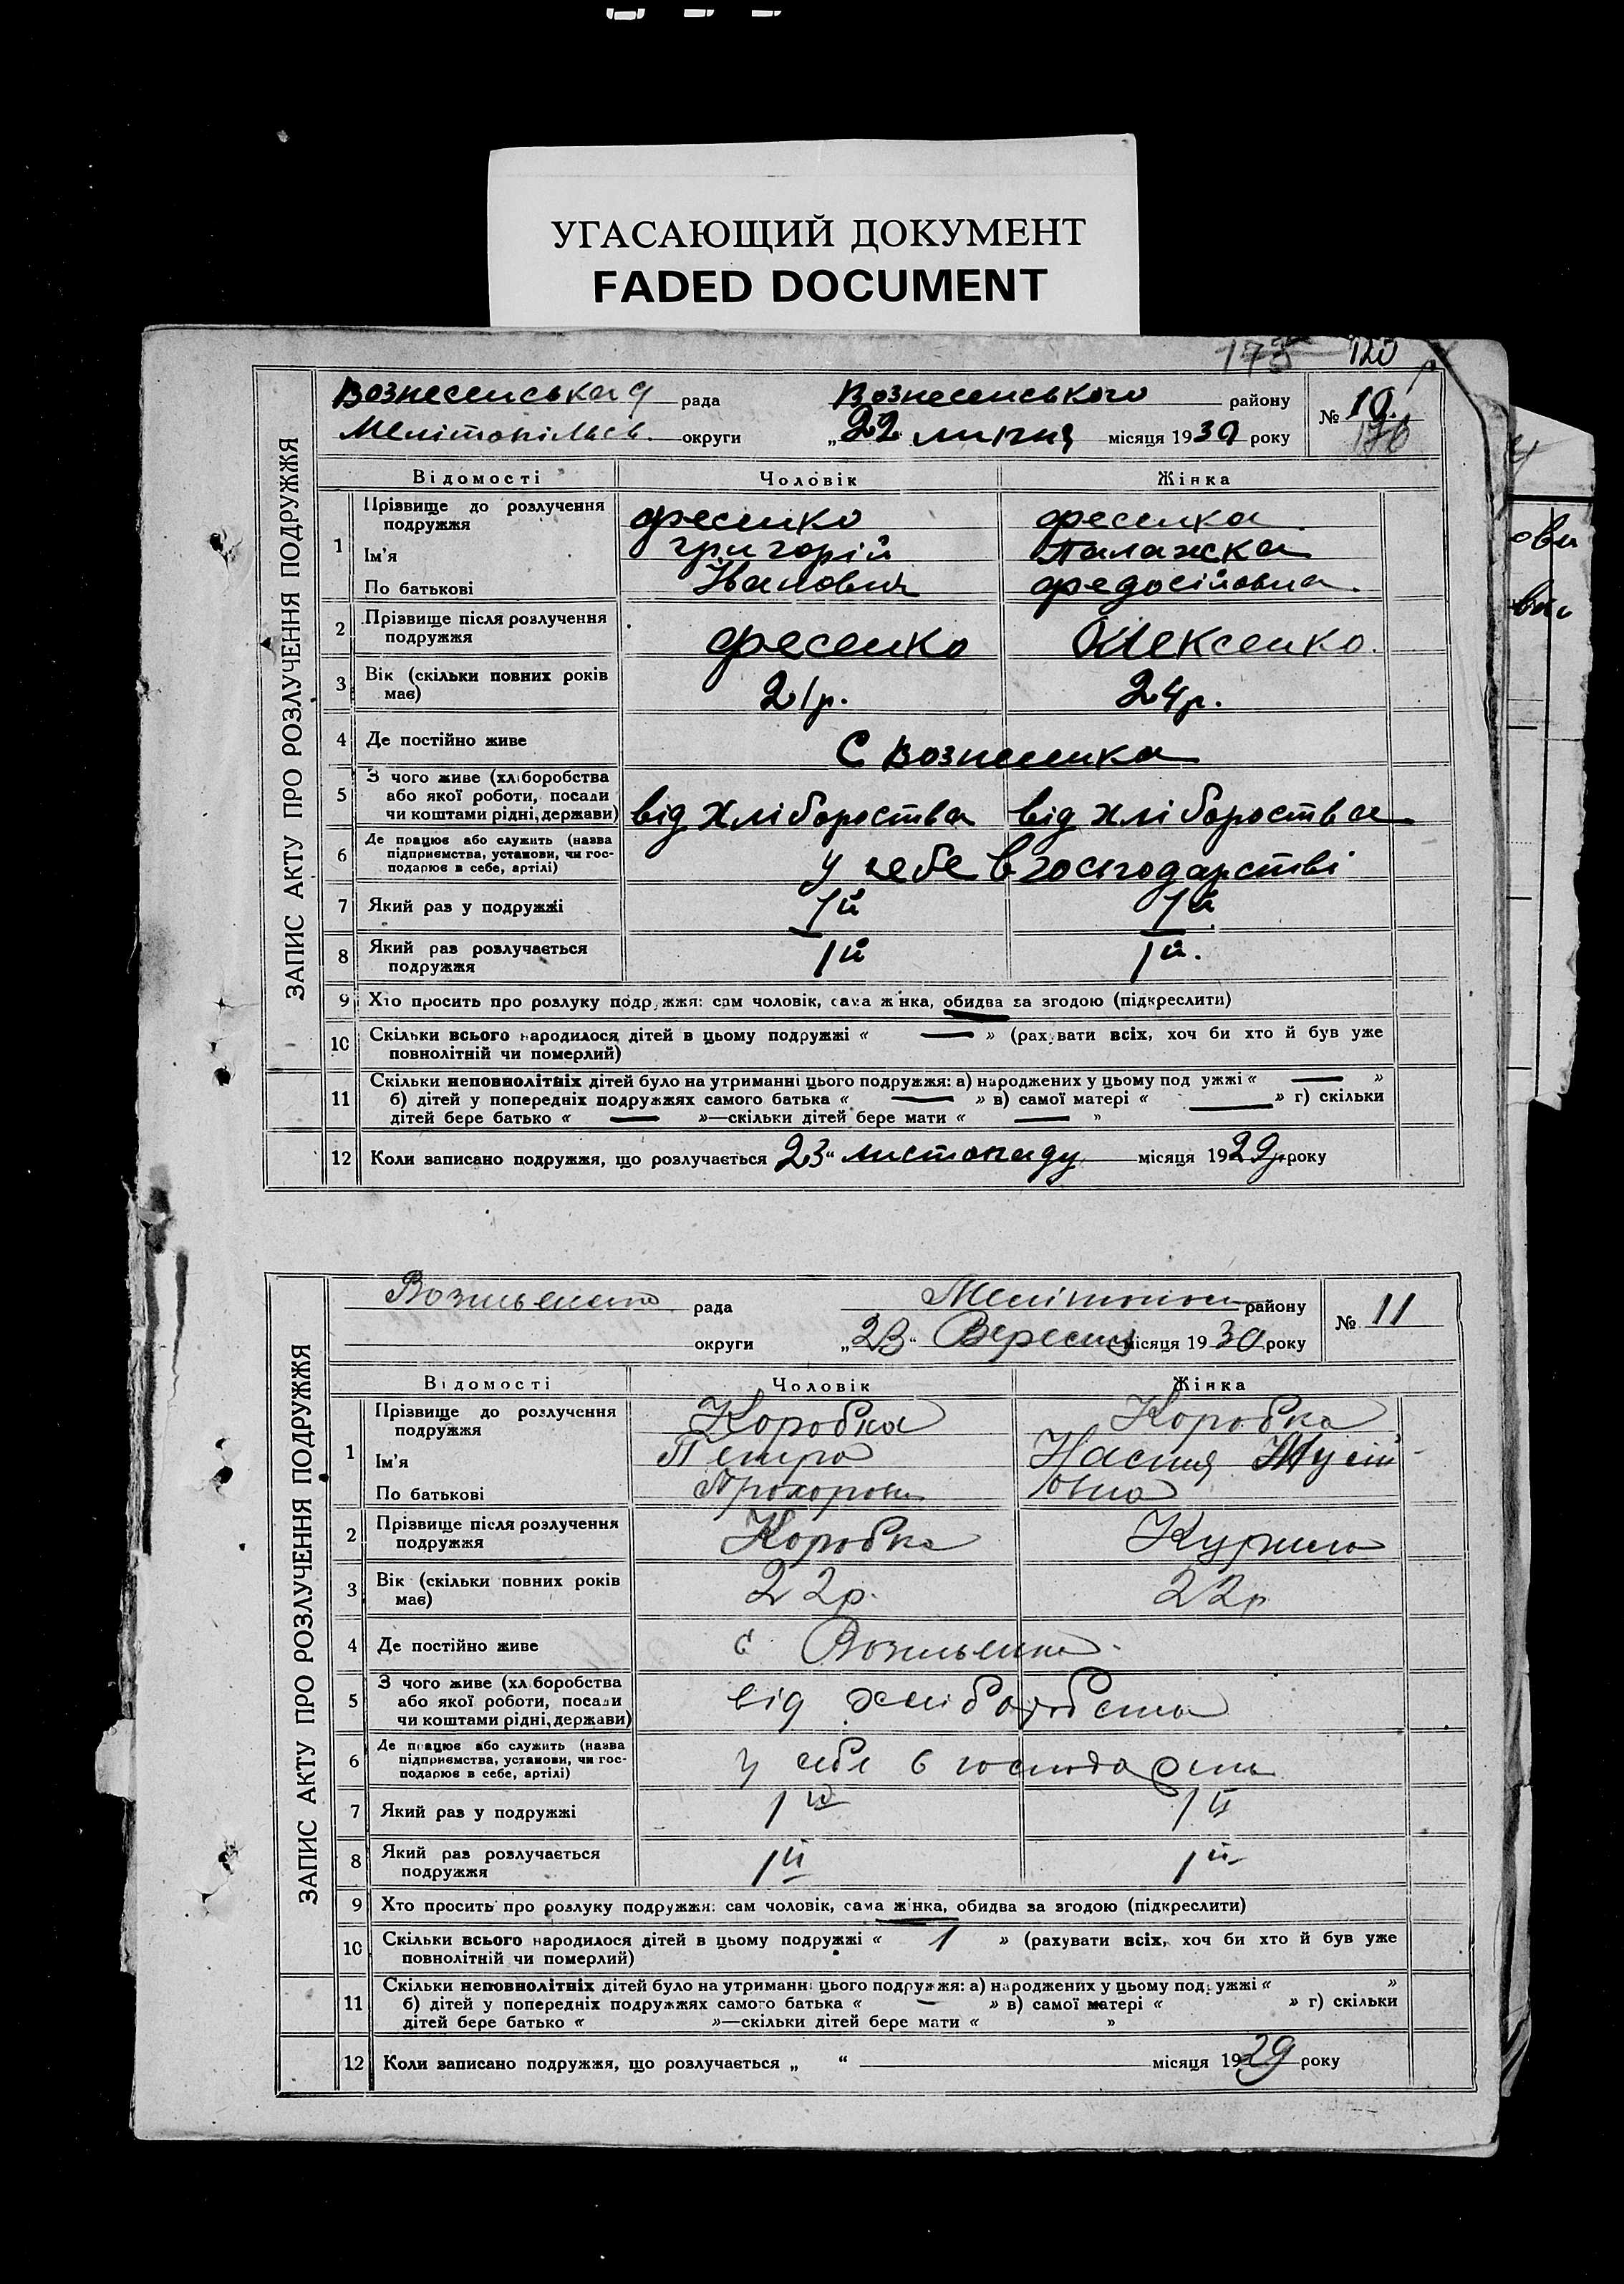 УГАСАЮЩИЙ ДОКУМЕНТ
FADED DOCUMENT
173 120
ЗАПИС АКТУ ПРО РОЗЛУЧЕННЯ ПОДРУЖЖЯ
Вознесенська рада Вознесенського району № 10.
Мелітопільськ. округи „22 липня місяця 1930 року
Відомості Чоловік Жінка
1 Прізвище до розлучення подружжя Фесенко Фесенка
Ім'я Григорій Палажка
По батькові Іванович Федосіївна.
2 Прізвище після розлучення подружжя Фесенко Олексенко.
3 Вік (скільки повних років має) 21р. 24р.
4 Де постійно живе С Вознесенка
5 З чого живе (хліборобства або якої роботи, посади чи коштами рідні, держави) від хлібороства від хлібороства
6 Де працює або служить (назва підприємства, установи, чи господарює в себе, артілі) у себе в господарстві
7 Який раз у подружжі 1й 1й
8 Який раз розлучається подружжя 1й 1й.
9 Хто просить про розлуку подружжя: сам чоловік, сама жінка, обидва за згодою (підкреслити)
10 Скільки всього народилося дітей в цьому подружжі « — » (рахувати всіх, хоч би хто й був уже
повнолітній чи померлий)
11 Скільки неповнолітніх дітей було на утриманні цього подружжя: а) народжених у цьому подружжі « — »
б) дітей у попередніх подружжях самого батька « — » в) самої матері « — » г) скільки
дітей бере батько « — »—скільки дітей бере мати « — »
12 Коли записано подружжя, що розлучається 23“ листопаду місяця 1929р. року
ЗАПИС АКТУ ПРО РОЗЛУЧЕННЯ ПОДРУЖЖЯ
рада району № 11
округи „23“ Вересня місяця 1930 року
Відомості Чоловік Жінка
1 Прізвище до розлучення подружжя Коробка Коробка
Ім'я Петро Настя
По батькові Прохорович овна
2 Прізвище після розлучення подружжя Коробка
3 Вік (скільки повних років має) 22р. 22р
4 Де постійно живе с
5 З чого живе (хліборобства або якої роботи, посади чи коштами рідні, держави) від
6 Де працює або служить (назва підприємства, установи, чи господарює в себе, артілі) у себе в
7 Який раз у подружжі 1й 1й
8 Який раз розлучається подружжя 1й 1й
9 Хто просить про розлуку подружжя: сам чоловік, сама жінка, обидва за згодою (підкреслити)
10 Скільки всього народилося дітей в цьому подружжі « 1 » (рахувати всіх, хоч би хто й був уже
повнолітній чи померлий)
11 Скільки неповнолітніх дітей було на утриманні цього подружжя: а) народжених у цьому подружжі « »
б) дітей у попередніх подружжях самого батька « — » в) самої матері « » г) скільки
дітей бере батько « »—скільки дітей бере мати « »
12 Коли записано подружжя, що розлучається „ “ місяця 1929 року